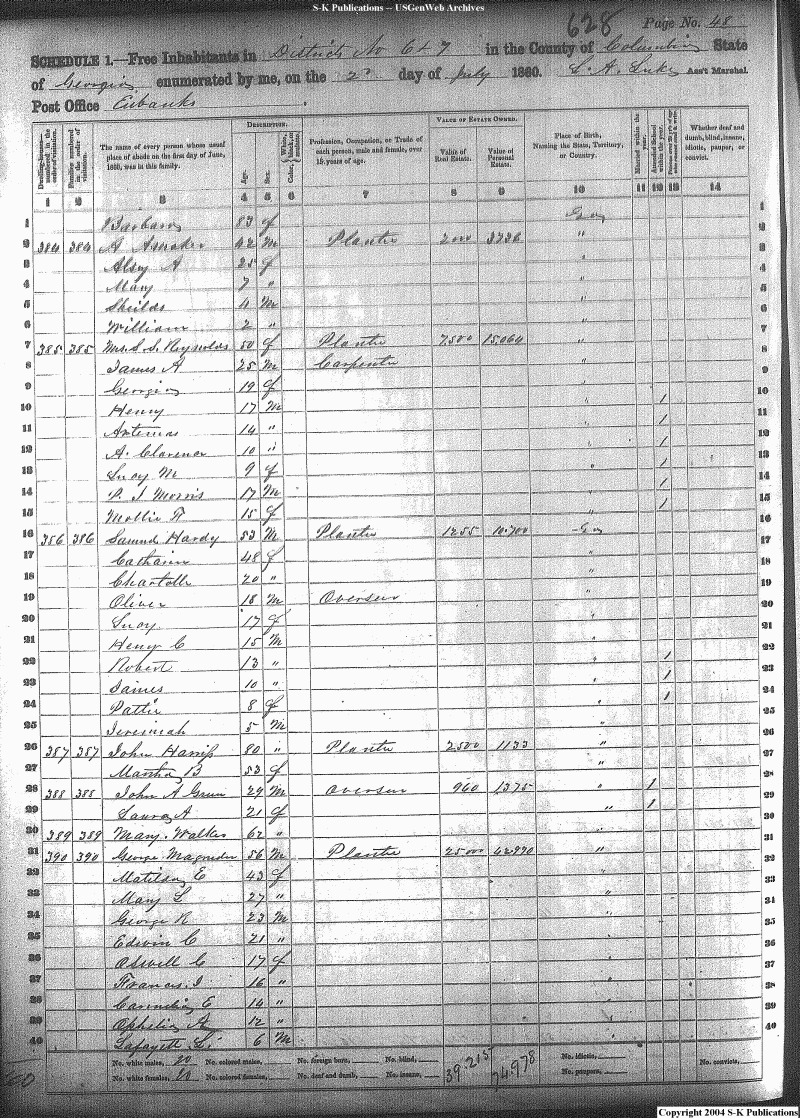 S-K Publications -- USGenWeb Archives
628 Page No. 48
SCHEDULE 1.—Free Inhabitants in Districts No 6 & 7 in the County of Columbia State
of Georgia enumerated by me, on the 2d day of July 1860. L. A. Luke Ass't Marshal.
Post Office Eubanks
DESCRIPTION. VALUE OF ESTATE OWNED.
Dwelling-houses—numbered in the order of visitation. Families numbered in the order of visitation. The name of every person whose usual place of abode on the first day of June, 1860, was in this family. Age. Sex. Color, White, black, or mulatto. Profession, Occupation, or Trade of each person, male and female, over 15 years of age. Value of Real Estate. Value of Personal Estate. Place of Birth, Naming the State, Territory, or Country. Married within the year. Attended School within the year. Whether deaf and dumb, blind, insane, idiotic, pauper, or convict.
1 2 3 4 5 6 7 8 9 10 11 12 13 14
1 Barbara 83 f Ga 1
2 384 384 A 42 M Planter 2000 3736 " 2
3 Alsy A 25 f " 3
4 Mary 7 " " 4
5 Sheilds 4 M " 5
6 William 2 " " 6
7 385 385 Mrs. S. S. Reynolds 50 f Planter 7500 15,064 " 7
8 James A 25 M Carpenter " 8
9 Georgia 19 f " 9
10 Henry 17 M " 1 10
11 Artemas 14 " " 1 11
12 A. Clarence 10 " " 1 12
13 Lucy M 9 f " 1 13
14 P. J Morris 17 M " 1 14
15 Mollie F 15 f " 1 15
16 386 386 Samuel Hardy 53 M Planter 1255 10.700 Ga 16
17 Catharin 48 f " 17
18 Charlotte 20 " " 18
19 Oliver 18 M Overseer " 19
20 Lucy 17 f " 20
21 Henry C 15 M " 21
22 Robert 13 " " 1 22
23 James 10 " " 1 23
24 Pattie 8 f " 1 24
25 Jeremiah 5 M " 25
26 387 387 John Harriss 80 " Planter 2500 1133 " 26
27 Martha B 53 f " 27
28 388 388 John A Green 29 M Overseer 960 1375 " 1 28
29 Laura A 21 f " 1 29
30 389 389 Mary Walker 62 " " 30
31 390 390 George Magruder 56 M Planter 25000 42,970 " 31
32 Matilda E 43 f " 32
33 Mary L 27 " " 33
34 George R 23 M " 34
35 Edwin C 21 " " 35
36 Oswell C 17 f " 36
37 Francis. I 16 " " 37
38 Cornelia E 14 " " 38
39 Ophelia A 12 " " 39
40 Lafayett L. 6 M " 40
No. white males, 20 No. colored males, No. foreign born, No. blind, 39.215 74,978 No. idiotic, No. convicts,
No. white females, 20 No. colored females, No. deaf and dumb, No. insane, No. paupers,
Copyright 2004 S-K Publications